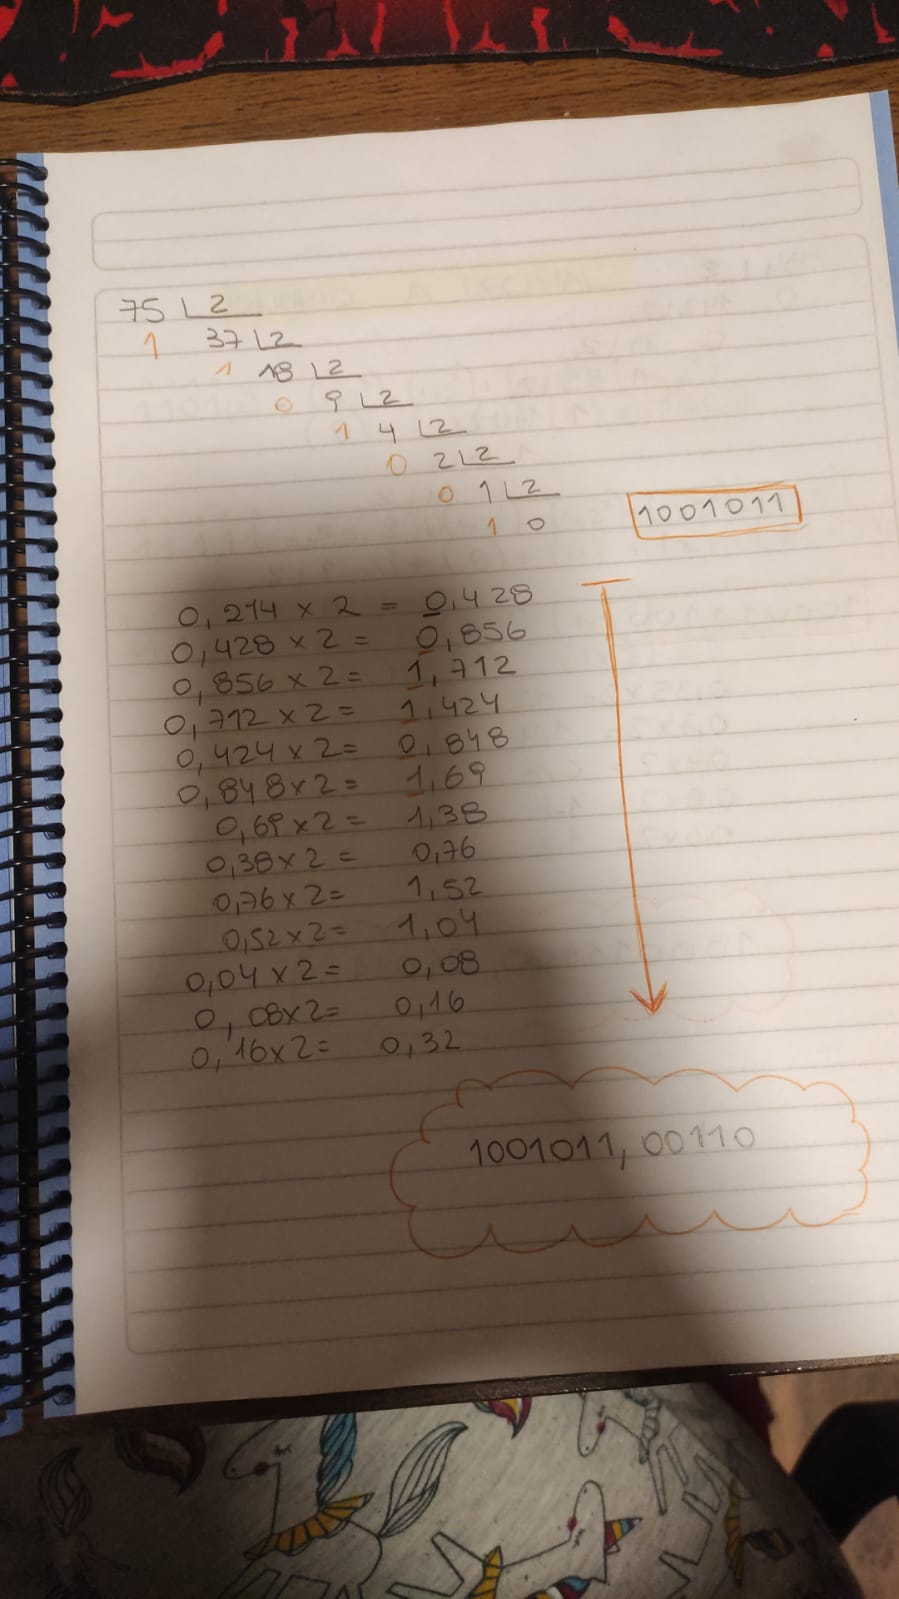 75 2
1 37 2
1 18 2
0 9 2
1 4 2
0 2 2
0 1 2
1 0
1001011
0,214 x 2 = 0,428
0,428 x 2 = 0,856
0,856 x 2 = 1,712
0,712 x 2 = 1,424
0,424 x 2 = 0,848
0,848 x 2 = 1,69
0,69 x 2 = 1,38
0,38 x 2 = 0,76
0,76 x 2 = 1,52
0,52 x 2 = 1,04
0,04 x 2 = 0,08
0,08 x 2 = 0,16
0,16 x 2 = 0,32
1001011, 00110